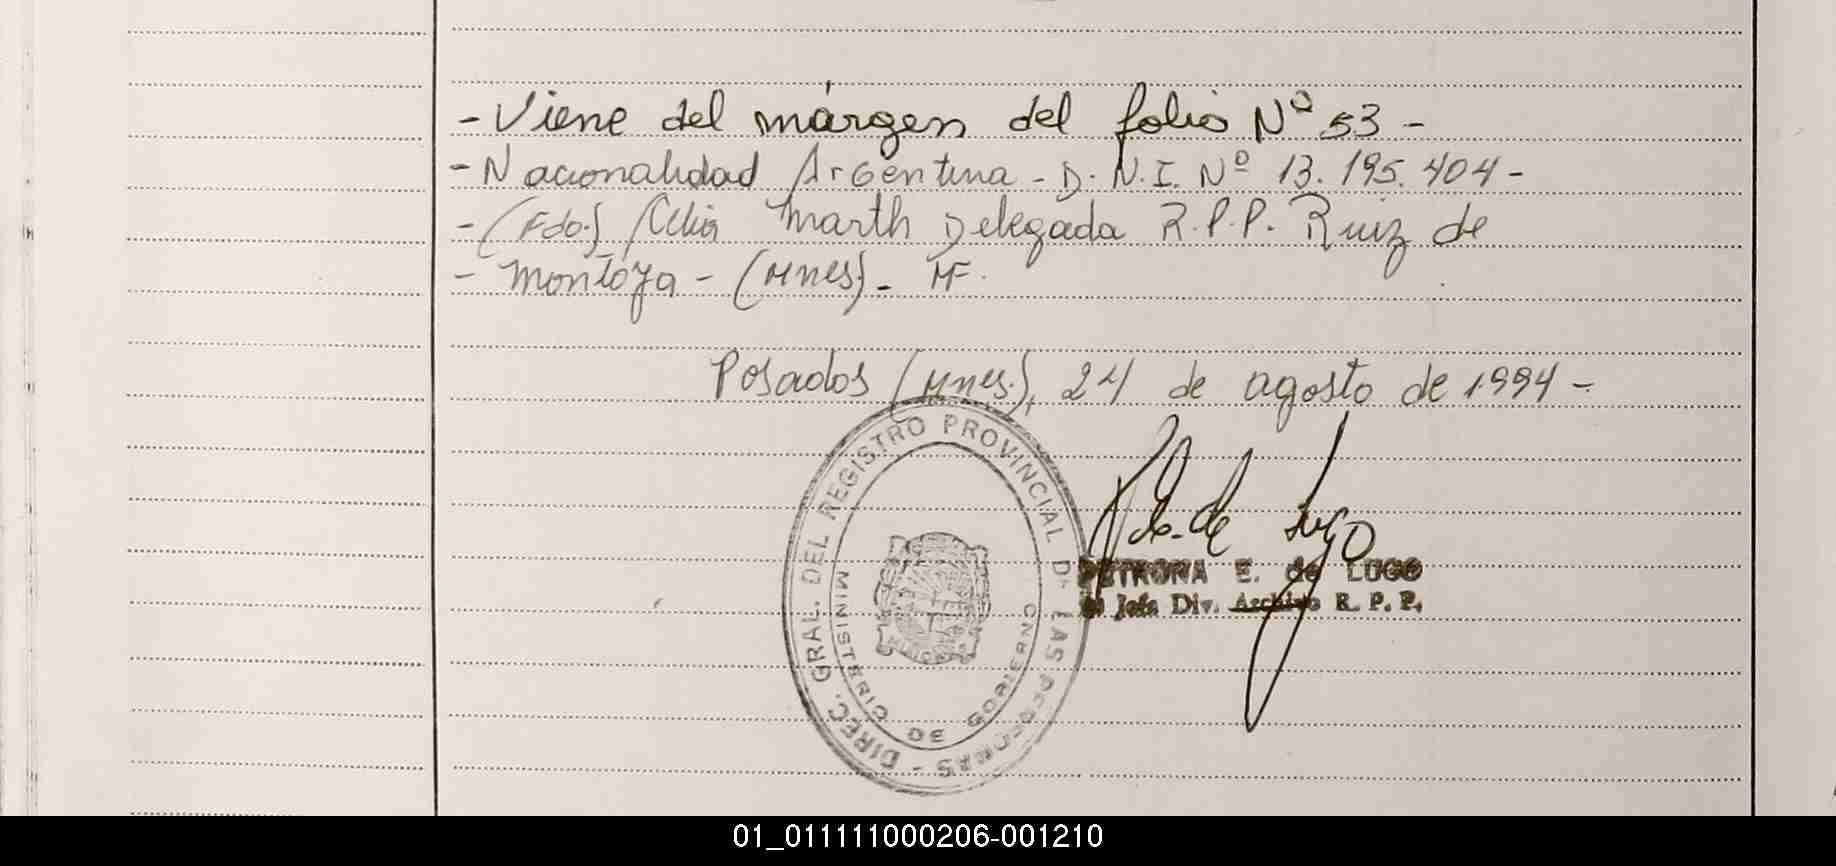 - Viene del márgen del folio Nº 53 -
- Nacionalidad Argentina - D. N. I. Nº 13.195.404 -
- (Fdo.) Celia Marth Delegada R. P. P. Ruiz de
- Montoya - (Mnes). MF.
Posadas (Mnes.), 24 de agosto de 1994 -
DIREC. GRAL. DEL REGISTRO PROVINCIAL DE LAS PERSONAS -
MINISTERIO DE GOBIERNO
P. E. de Lugo
PETRONA E. de LUGO
Jefa Div. Archivo R. P. P.
01_011111000206-001210